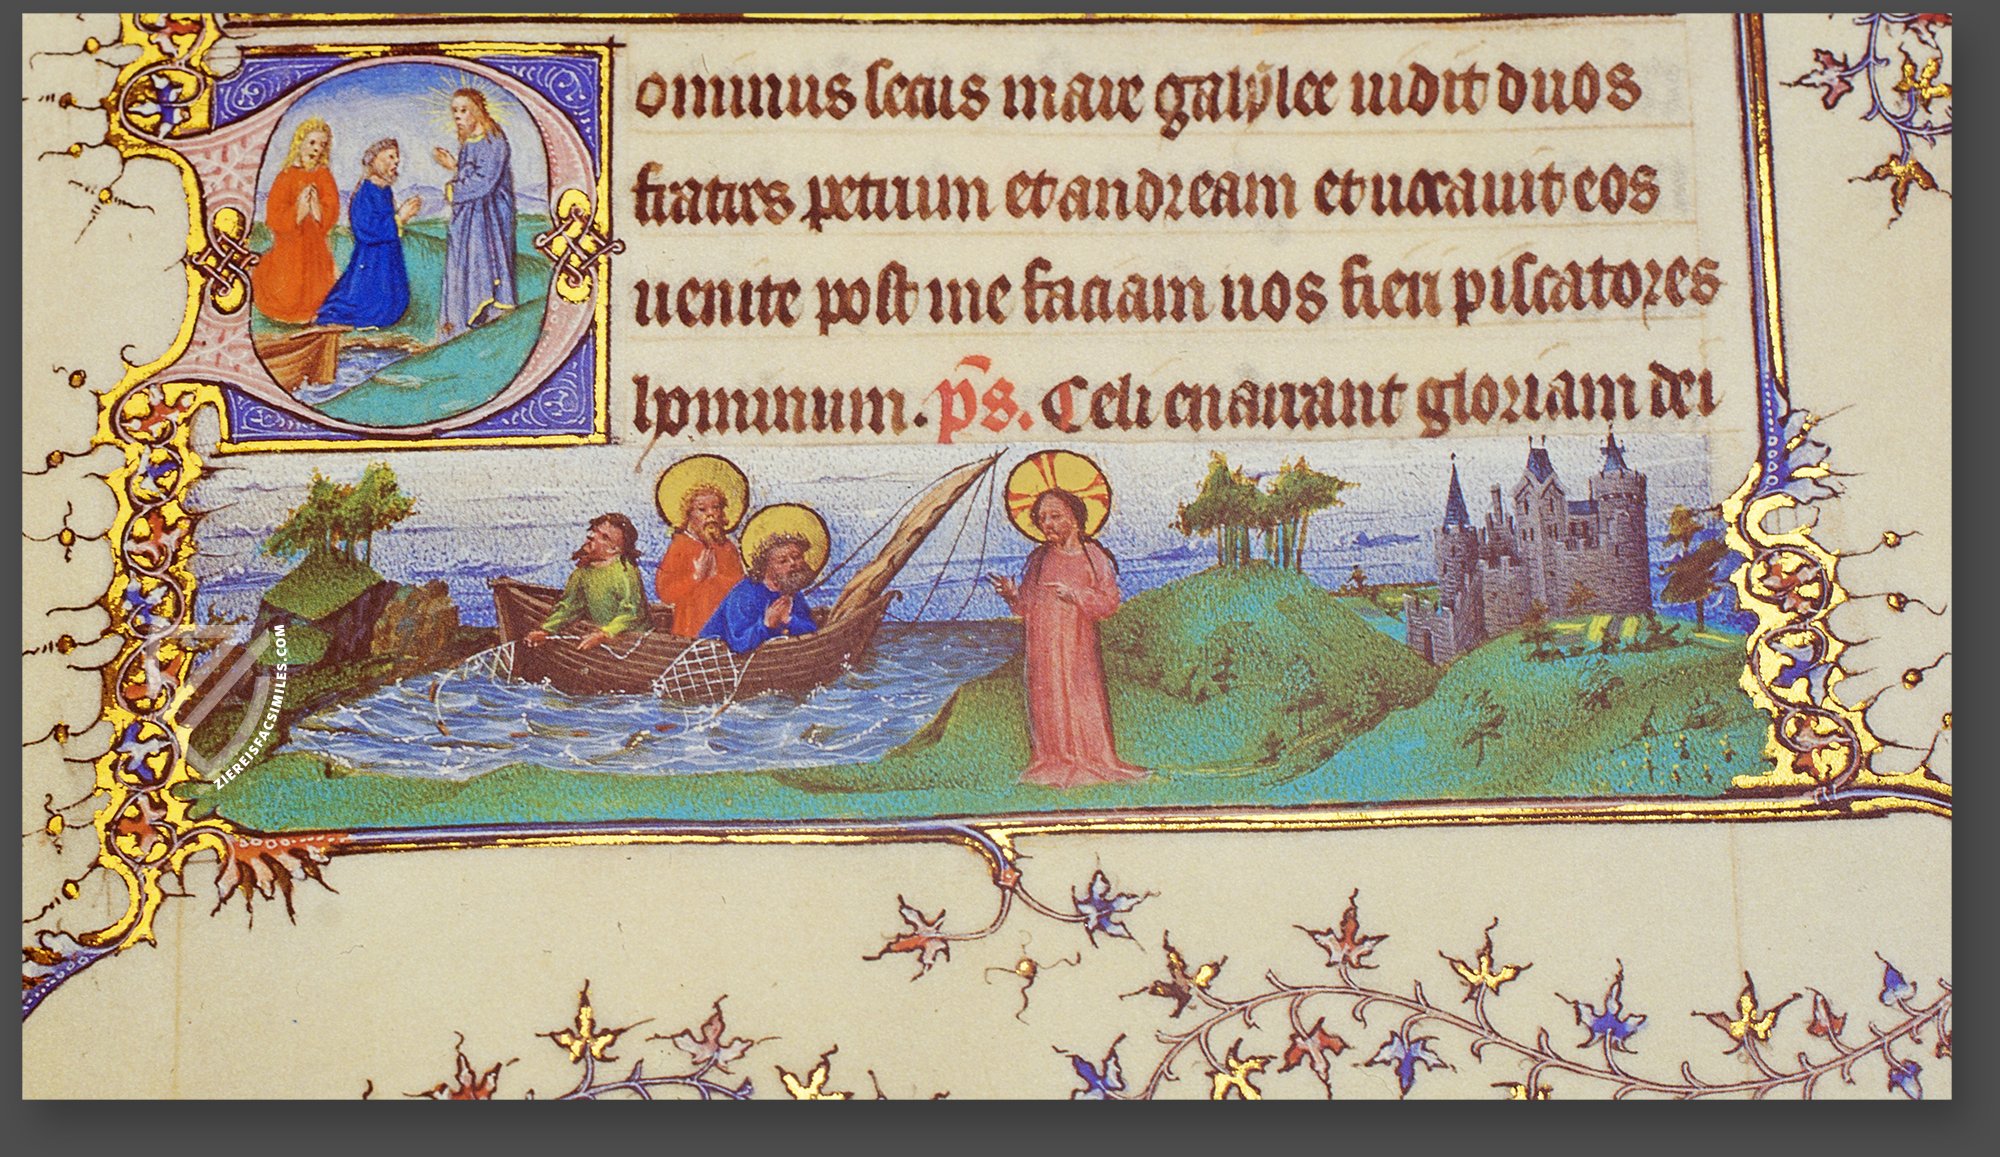 Dominus secus mare galylee uidit duos
fratres petrum et andream et uocauit eos
uenite post me faciam uos fieri piscatores
hominum. p̄s. Celi enarrant gloriam dei
ZIEREISFACSIMILES.COM